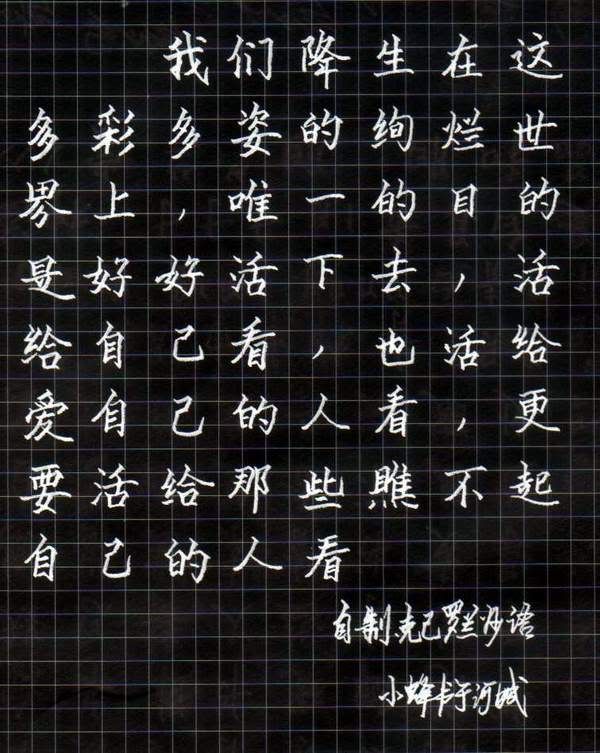 我们降生在这
多彩多姿的绚烂世
界上，唯一的目的
是好好活下去，活
给自己看，也活给
爱自己的人看，更
要活给那些瞧不起
自己的人看
自制克己罗兰沙语
小蜂书于河城